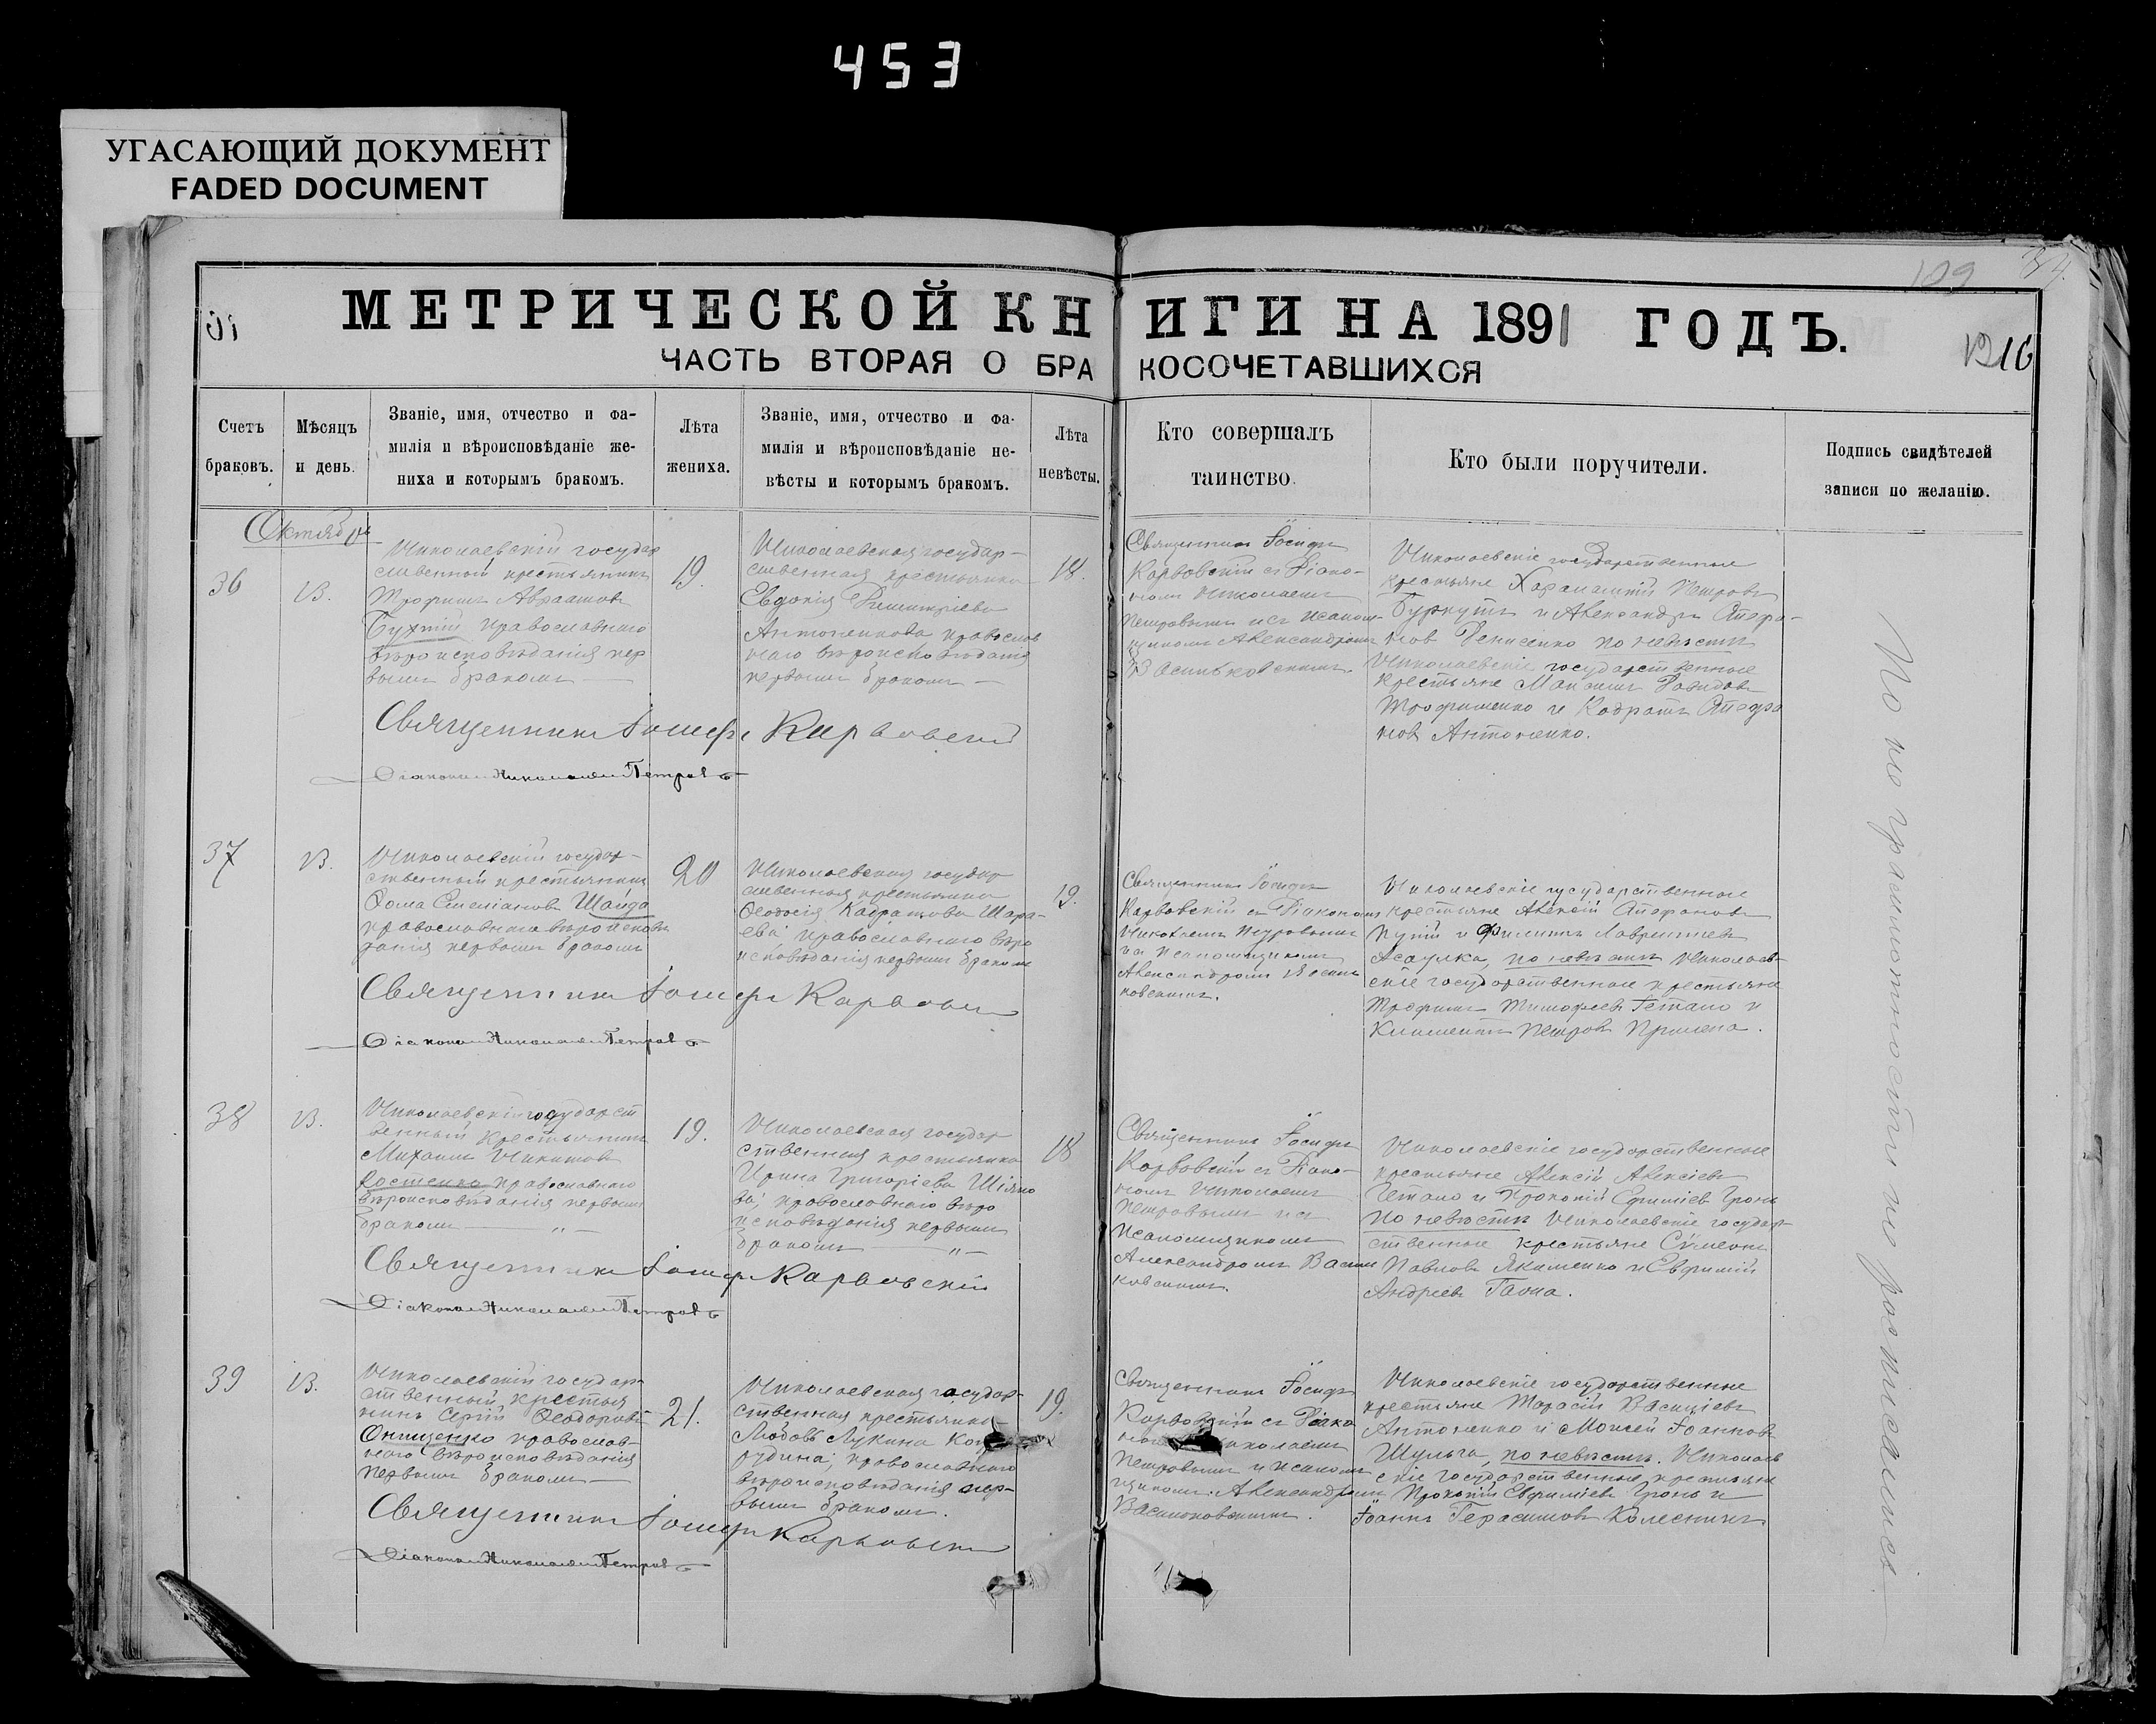 453
УГАСАЮЩИЙ ДОКУМЕНТ
FADED DOCUMENT
109
МЕТРИЧЕСКОЙ КНИГИ НА 1891 ГОДЪ.
ЧАСТЬ ВТОРАЯ О БРАКОСОЧЕТАВШИХСЯ
Счетъ браковъ.
Мѣсяцъ и день.
Званіе, имя, отчество и фа-
милія и вѣроисповѣданіе же-
ниха и которымъ бракомъ.
Лѣта жениха.
Званіе, имя, отчество и фа-
милія и вѣроисповѣданіе не-
вѣсты и которымъ бракомъ.
Лѣта невѣсты.
Кто совершалъ таинство.
Кто были поручители.
Подпись свидѣтелей
записи по желанію.
Октябрь
36
13.
Николаевскій государ
ственный крестьянинъ
Трофимъ Авраамовъ
Бухтій православнаго
вѣроисповѣданія пер
вымъ бракомъ
19.
Николаевская государ-
ственная крестьянка
Евдокія Димитріева
Антоненкова православ
наго вѣроисповѣданія
первымъ бракомъ
18.
Священникъ Іосифъ
Карвовскій съ Діако-
номъ Николаемъ
Петровымъ и съ псалом-
щикомъ Александромъ
Васильковскимъ.
Николаевскіе государственные
крестьяне Харлампій Петровъ
Буркутъ и Александръ Стефа-
новъ Денисенко по невѣстѣ
Николаевскіе государственные
крестьяне Максимъ Давидовъ
Трофименко и Кодратъ Стефа
новъ Антоненко.
Священникъ Іосифъ Карвовскій
Діаконъ Николай Петровъ
37
13.
Николаевскій государ-
ственный крестьянинъ
Ѳома Стеліановъ Шайда
православнаго вѣроисповѣ
данія первымъ бракомъ
20
Николаевская государ
ственная крестьянка
Ѳеодосія Кадратова Шара-
ева; православнаго вѣро
исповѣданія первымъ бракомъ
19.
Священникъ Іосифъ
Карвовскій съ Діакономъ
Николаемъ Петровымъ
и съ псаломщикомъ
Александромъ Василь
ковскимъ.
Николаевскіе государственные
крестьяне Алексій Стефановъ
Пугій и Филиппъ Лаврентіевъ
Асаулка, по невѣстѣ Николаев-
скіе государственные крестьяне
Трофимъ Тимофеевъ Гетало и
Климентъ Петровъ
Священникъ Іосифъ Карвовскій
Діаконъ Николай Петровъ
38
13.
Николаевскій государст
венный крестьянинъ
Михаилъ Никитовъ
Костенко православнаго
вѣроисповѣданія первымъ
бракомъ — „ —
19.
Николаевская государ
ственная крестьянка
Ирина Григоріева Шіяно
ва; православнаго вѣро
исповѣданія первымъ
бракомъ — „ —
18
Священникъ Іосифъ
Карвовскій съ Діако-
номъ Николаемъ
Петровымъ и съ
псаломщикомъ
Александромъ Василь
ковскимъ.
Николаевскіе государственные
крестьяне Алексій Алексіевъ
Гетало и Прокопій Ефиміевъ Гронь
по невѣстѣ Николаевскіе государ
ственные крестьяне Сѵмеонъ
Павловъ Якименко и Евфимій
Андреевъ
Священникъ Іосифъ Карвовскій
Діаконъ Николай Петровъ
39
13.
Николаевскій государ
ственный крестья
нинъ Сергій Ѳеодоровъ
Онищенко православ-
наго вѣроисповѣданія
первымъ бракомъ
21.
Николаевская государ-
ственная крестьянка
Любовь Лукина
православнаго
вѣроисповѣданія пер-
вымъ бракомъ.
19.
Священникъ Іосифъ
Карвовскій съ Діако
номъ Николаемъ
Петровымъ и псалом
щикомъ Александромъ
Васильковскимъ.
Николаевскіе государственные
крестьяне Тарасій Василіевъ
Антоненко и Моисей Іоанновъ
Шульга, по невѣстѣ. Николаев
скіе государственные крестьяне
Прокопій Евфиміевъ Гронь и
Іоаннъ Герасимовъ Колесникъ
Священникъ Іосифъ Карвовскій
Діаконъ Николай Петровъ
По неграмотности не росписались